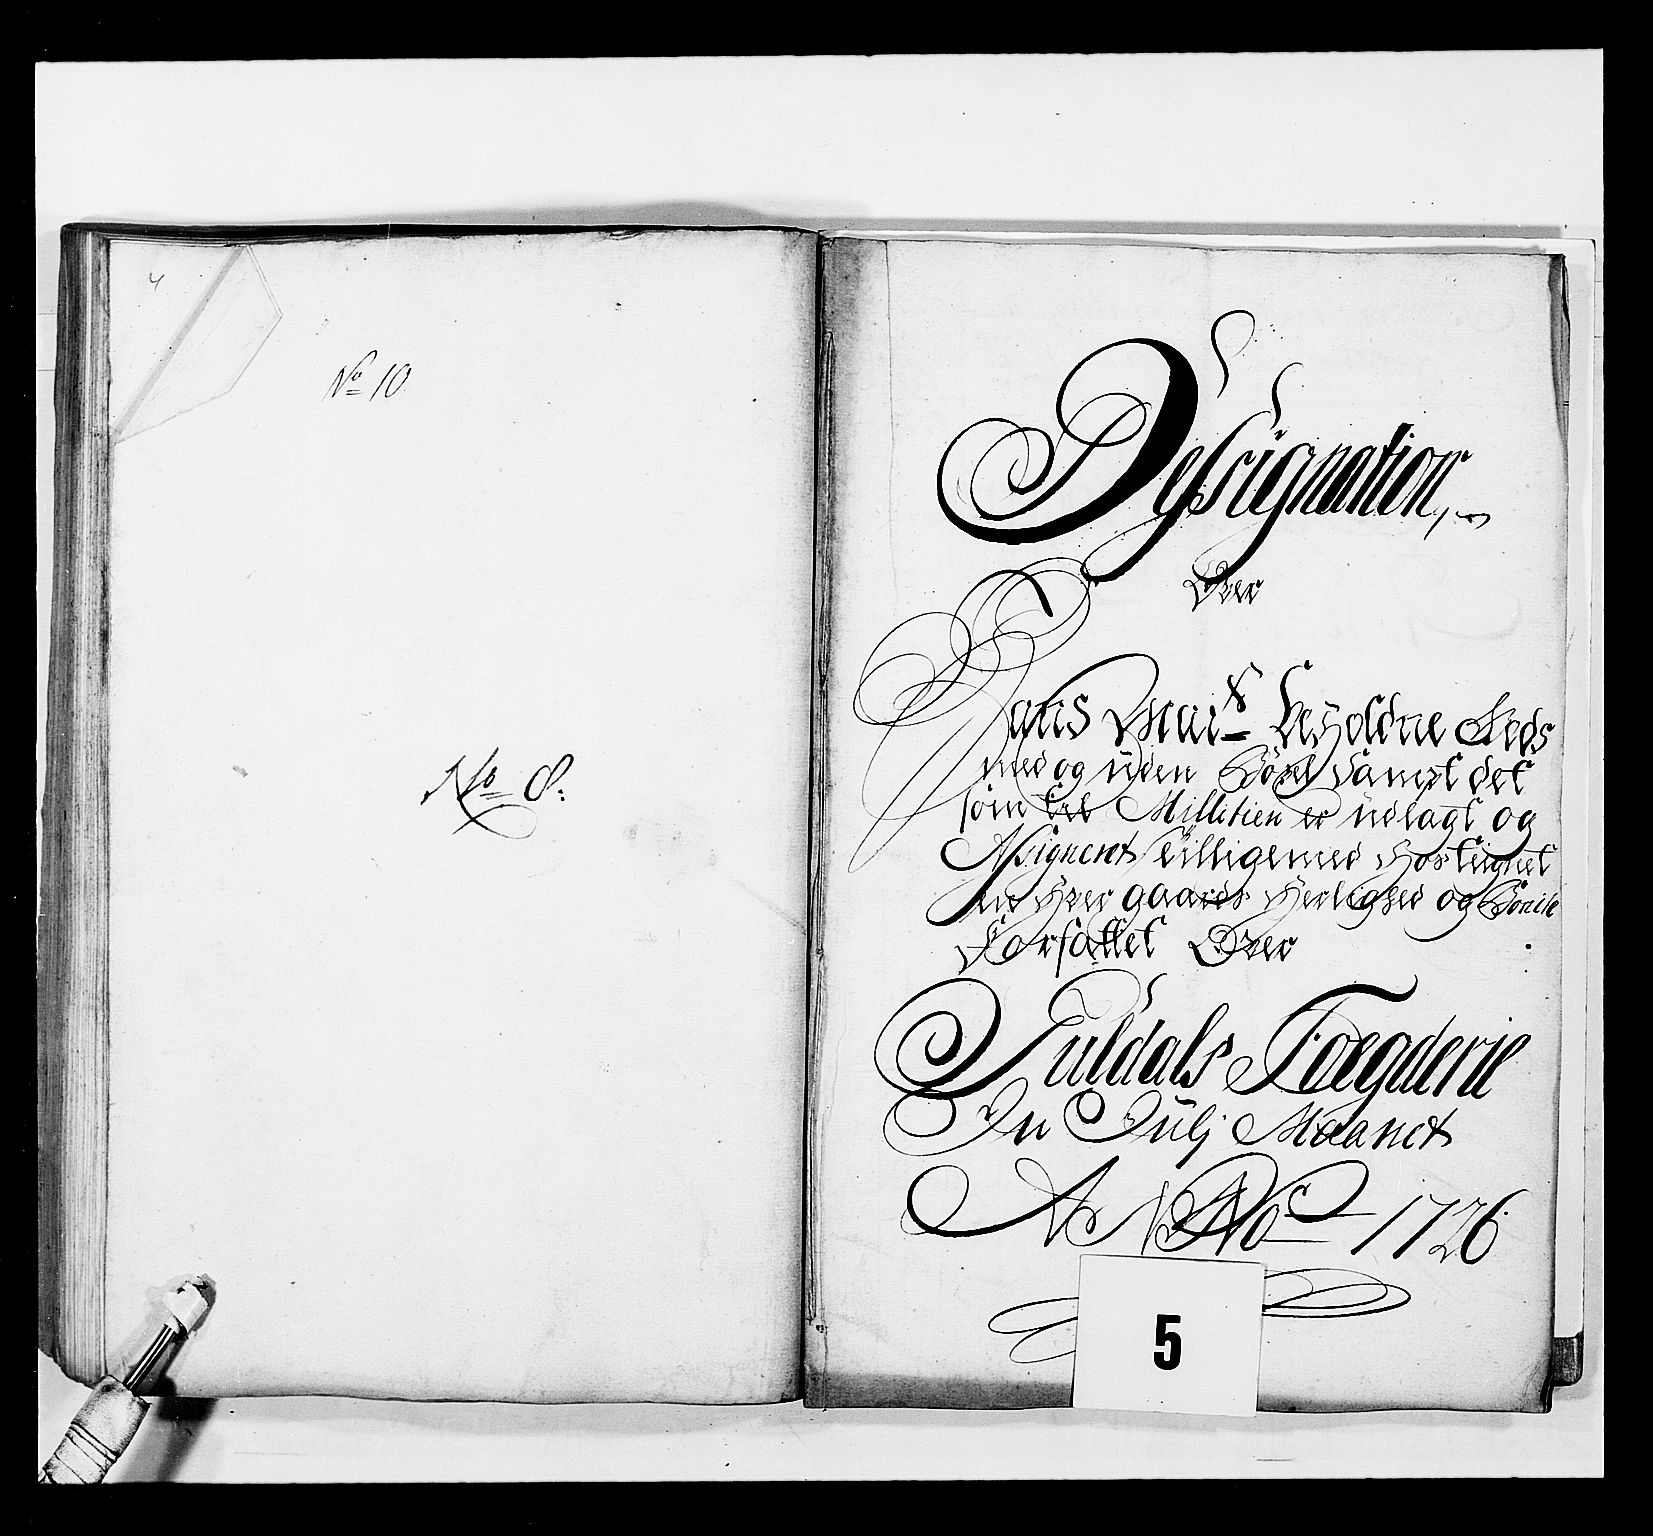 4
No 10
No 8:
Desseignation,
Over
Hans Mai.ts beholdne Gods
med og uden Böxel sampt det
som til Millitien er udlagt og
Assigneret tilligemed hosteignet
en hver gaards Herlighed og Bonite
Forfattet Over
Guldals Foegderie
In Julj Maanet
A NNo 1726
5